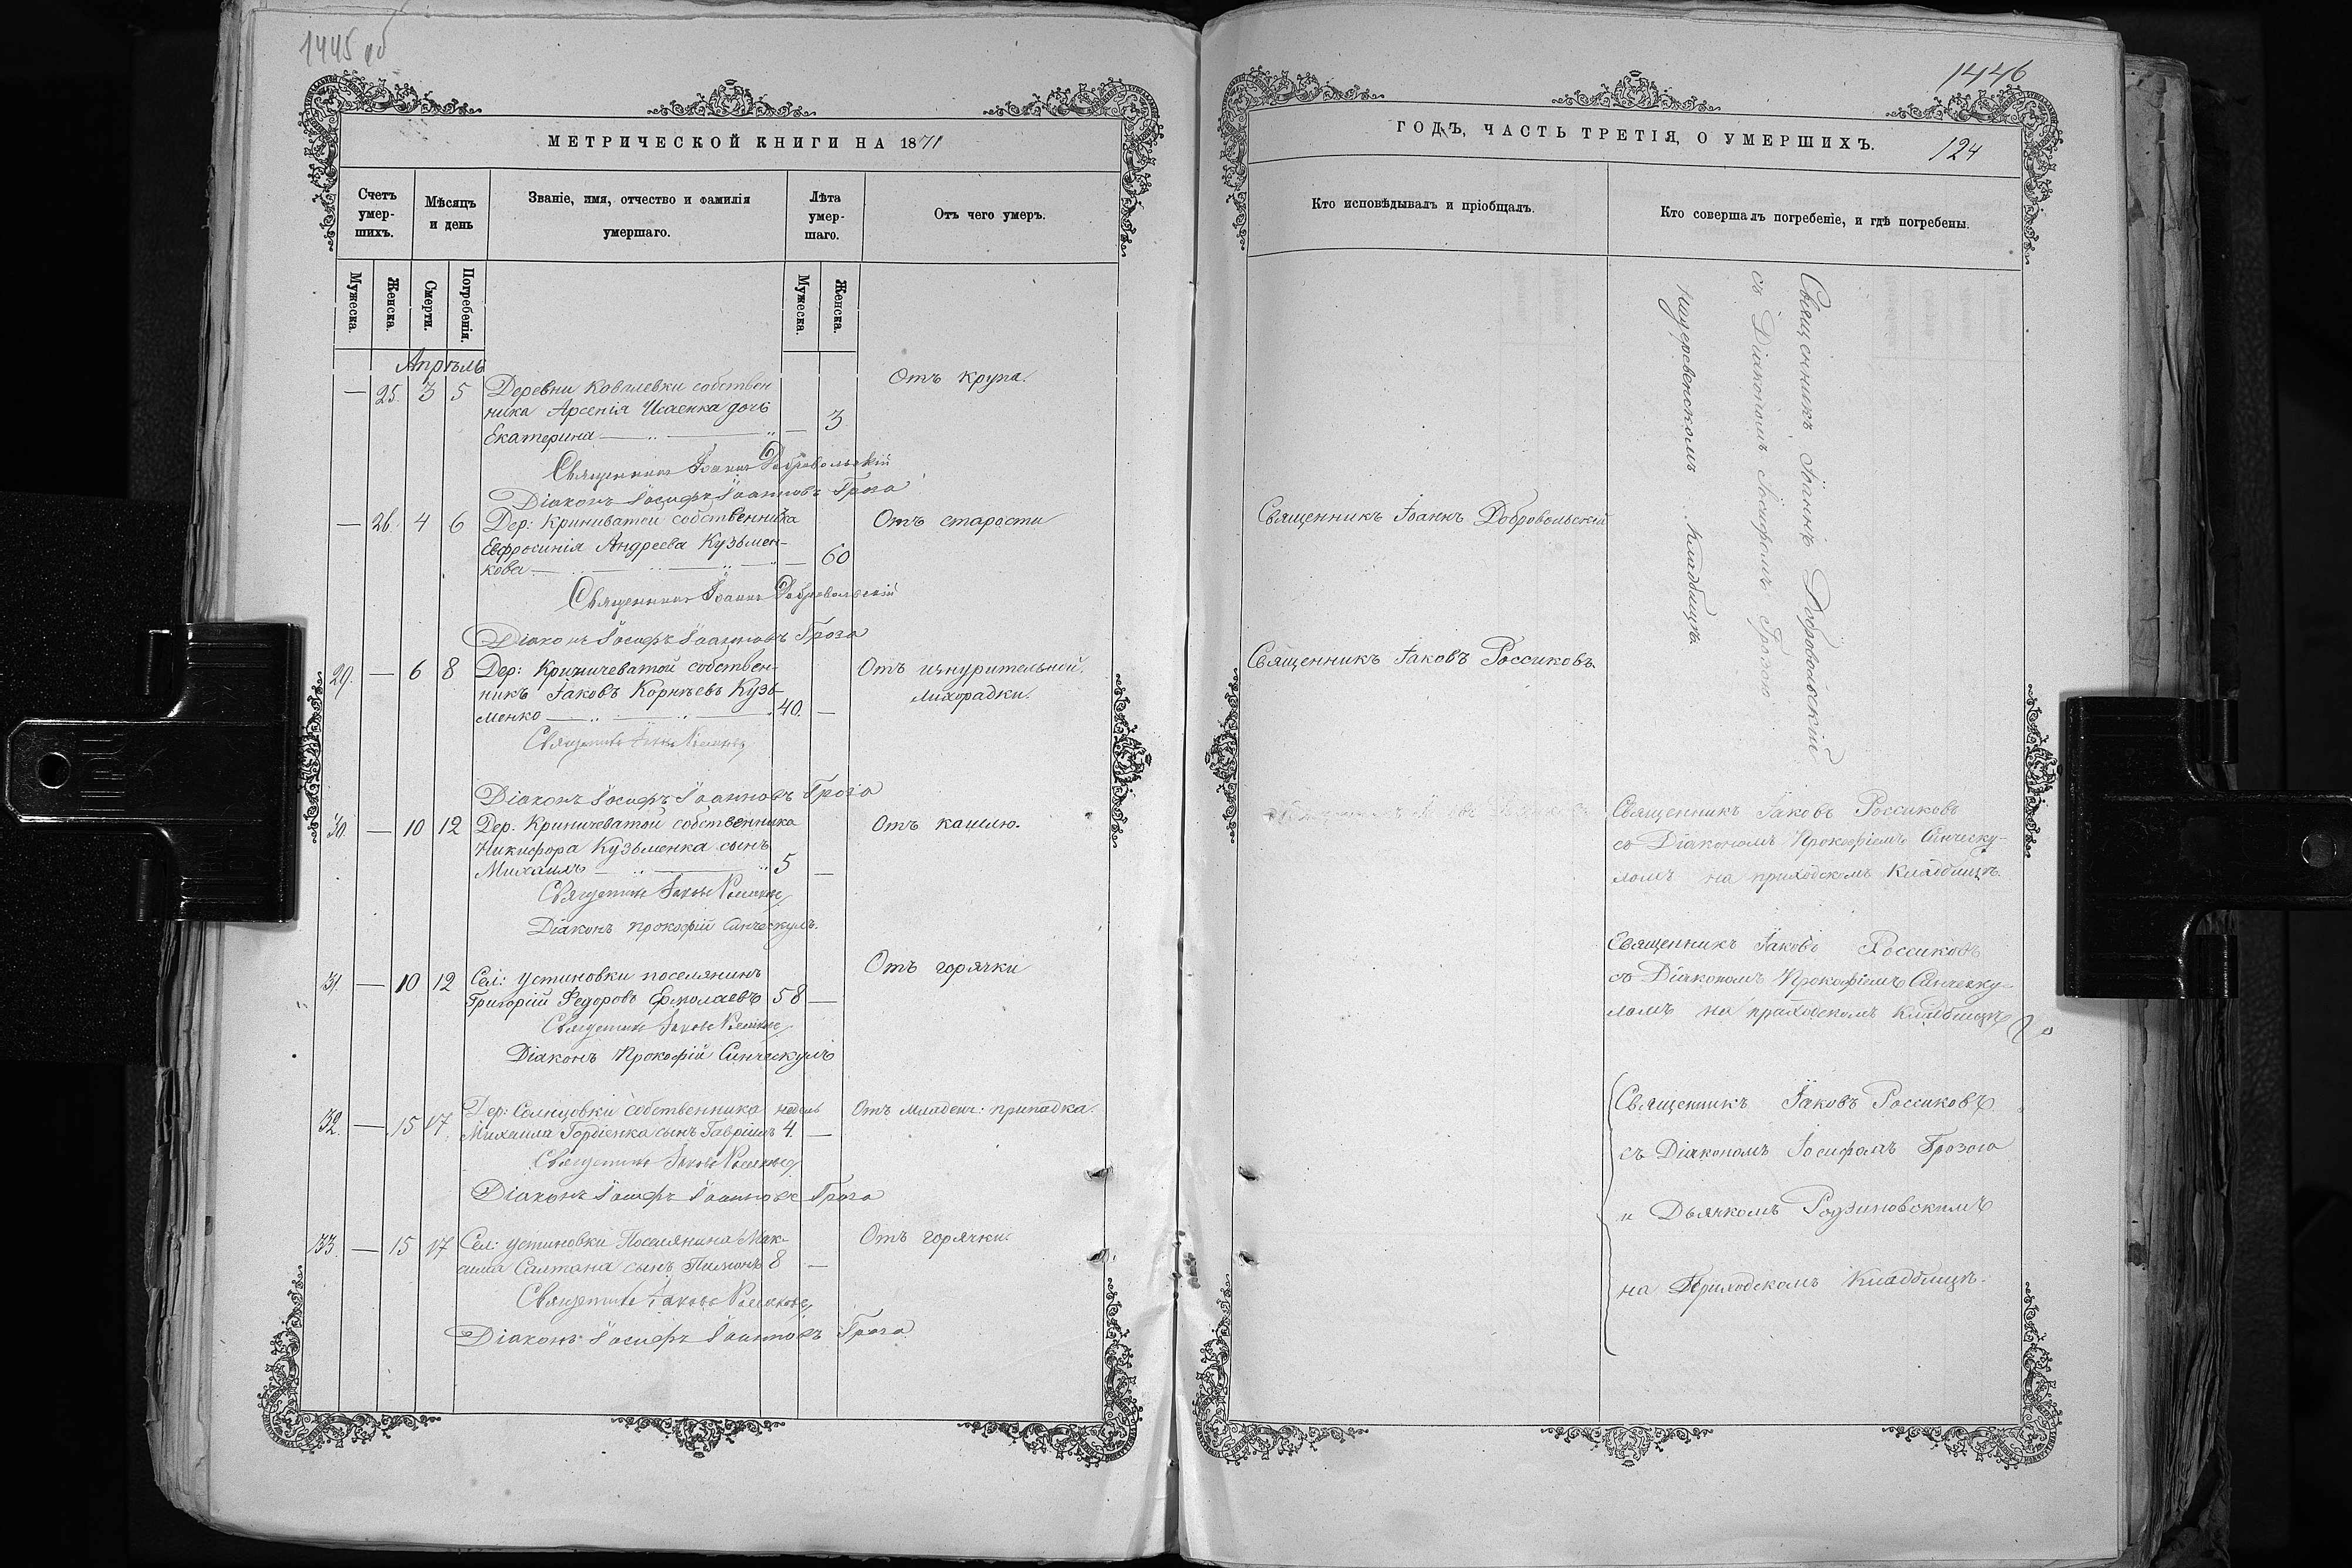 1445 об
МЕТРИЧЕСКОЙ КНИГИ НА 1871
Счетъ умер-шихъ.
Мѣсяцъ и день
Званіе, имя, отчество и фамилія умершаго.
Лѣта умер-шаго.
Отъ чего умеръ.
Мужеска.
Женска.
Смерти.
Погребенія.
Мужеска.
Женска.
Апрѣль
— 25. 3 5 Деревни Ковалевки собствен
ника Арсенія Исаенка дочь
Екатерина — 3
Отъ крупа.
Священникъ Іоаннъ Добровольскій
Діаконъ Іосифъ Іоанновъ Гроза
— 26. 4 6 Дер: Криниватой собственника
Евфросинія Андреева Кузьмен-
кова — 60
Отъ старости
Священникъ Іоаннъ Добровольскій
Діаконъ Іосифъ Іоанновъ Гроза
29. — 6 8 Дер: Криничеватой собствен-
никъ Іаковъ Корнѣевъ Кузь-
менко 40. —
Отъ изнурительной
лихорадки.
Священникъ Іаковъ Россиковъ
Діаконъ Іосифъ Іоанновъ Гроза
30. — 10 12 Дер. Криничеватой собственника
Никифора Кузьменка сынъ
Михаилъ 5 —
Отъ кашлю.
Священникъ Іаковъ Россиковъ
Діаконъ Прокофій Синческулъ.
31. — 10 12 Сел: Устиновки поселянинъ
Григорій Федоровъ Ермолаевъ 58 —
Отъ горячки
Священникъ Іаковъ Россиковъ
Діаконъ Прокофій Синческулъ
32. — 15 17. Дер: Солнцовки собственника недель
Михаила Гордіенка сынъ Гавріилъ 4. —
Отъ младенч: припадка.
Священникъ Іаковъ Россиковъ
Діаконъ Іосифъ Іоанновъ Гроза
33. — 15 17 Сел: Устиновки Поселянина Мак-
сима Салтана сынъ 8 —
Отъ горячки
Священникъ Іаковъ Россиковъ
Діаконъ Іосифъ Іоанновъ Гроза
1446
124
ГОДЪ, ЧАСТЬ ТРЕТІЯ, О УМЕРШИХЪ.
Кто исповѣдывалъ и пріобщалъ.
Кто совершалъ погребеніе, и гдѣ погребены.
Священникъ Іоаннъ Добровольскій
съ Діакономъ Іосифомъ Грозою
надеревенскомъ кладбищѣ.
Священникъ Іоаннъ Добровольскій
Священникъ Іаковъ Россиковъ
Священникъ Іаковъ Россиковъ
съ Діакономъ Прокофіемъ Синческу-
ломъ на приходскомъ Кладбищѣ.
Священникъ Іаковъ Россиковъ
съ Діакономъ Прокофіемъ Синческу-
ломъ на приходскомъ Кладбищѣ
Священникъ Іаковъ Россиковъ
съ Діакономъ Іосифомъ Грозою
и Дьячкомъ Родзиновскимъ
на Приходскомъ Кладбищѣ.